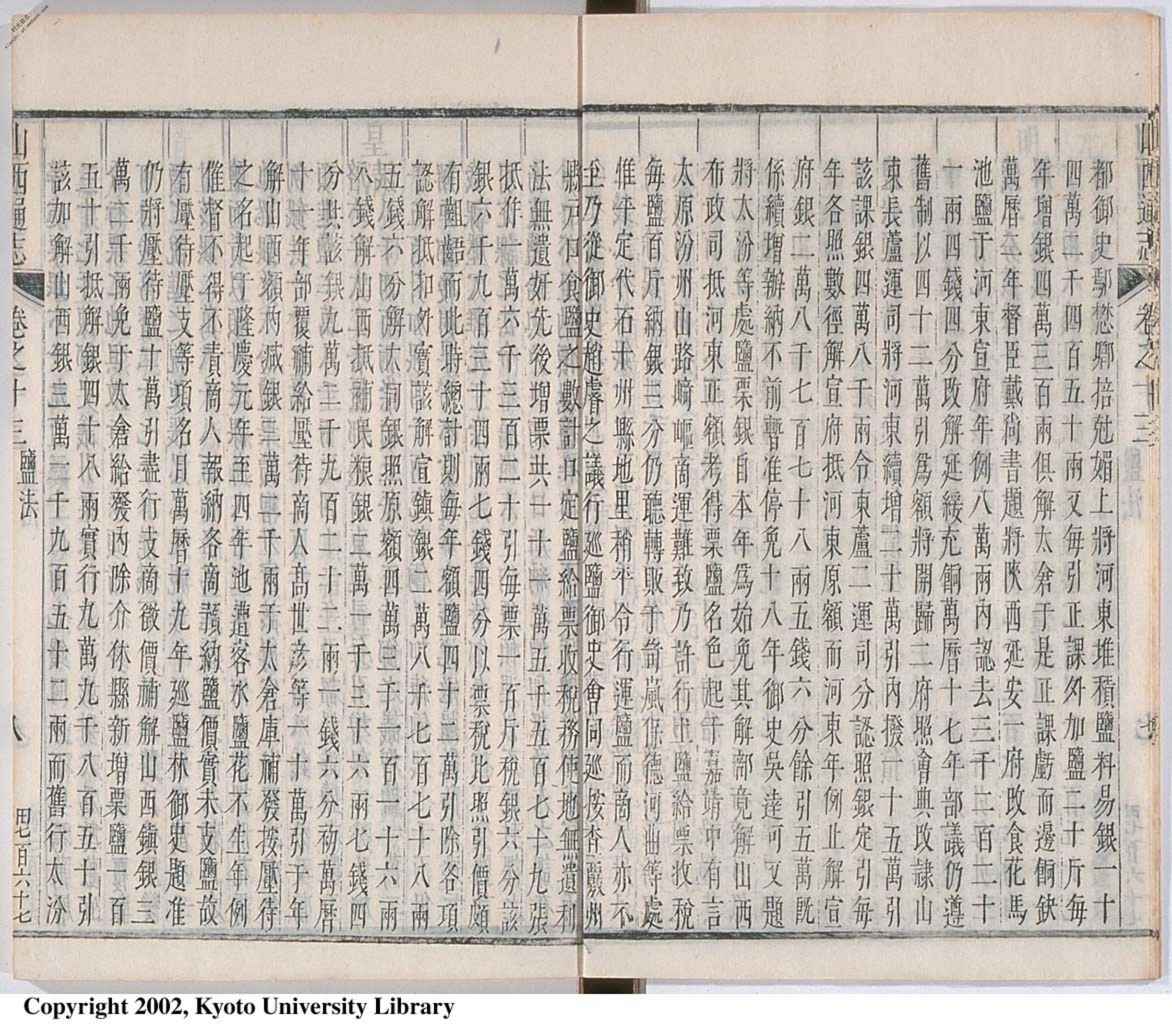 都御史鄢懋卿掊尅媚上將河東堆積鹽料易銀一十
四萬二千四百五十兩又每引正課外加鹽二十斤每
年增銀四萬三百兩俱解太倉于是正課虧而邊餉缺
萬曆六年督臣戴尚書題將陝西延安一府改食花馬
池鹽于河東宣府年例八萬兩內認去三千二百二十
一兩四錢四分改解延綏充餉萬曆十七年部議仍遵
舊制以四十二萬引爲額將開歸二府照會典改隷山
東長蘆運司將河東續增二十萬引內撥一十五萬引
該課銀四萬八千兩令東蘆二運司分認照銀定引每
年各照數徑解宣府抵河東原額而河東年例止解宣
府銀二萬八千七百七十八兩五錢六分餘引五萬既
係續增辦納不前暫准停免十八年御史吳達可又題
將太汾等處鹽票銀自本年爲始免其解部竟解山西
布政司抵河東正額考得票鹽名色起于嘉靖中有言
太原汾州山路﨑嶇商運難致乃許行土鹽給票收稅
每鹽百斤納銀三分仍聽轉販于苛嵐保德河曲等處
惟平定代石十州縣地里稍平令行運鹽而商人亦不
至乃從御史趙睿之議行巡鹽御史會同巡按查覈州
縣戶口食鹽之數計口定鹽給票收稅務使地無遺利
法無遺奸先後增票共一十一萬五千五百七十九張
抵作一萬六千三百二十引每票一百斤稅銀六分該
銀六千九百三十四兩七錢四分以票稅比照引價頗
有齟齬而此時總計則每年額鹽四十二萬引除各項
認解抵扣外實該解宣鎮銀二萬八千七百七十八兩
五錢六分解大同銀照原額四萬三千一百一十六兩
八錢解山西抵補民糧銀二萬一千三十六兩七錢四
分共該銀九萬二千九百二十二兩一錢六分初萬曆
十年部覆補給壓待商人高世彥等六十萬引于年
解山西額內減銀三萬二千兩于太倉庫補發按壓待
之名起于隆慶元年至四年池遭客水鹽花不生年例
催督不得不責商人報納各商預納鹽價實未支鹽故
有壓待壓支等項名目萬曆十九年巡鹽林御史題准
仍將壓待鹽十萬引盡行支商徵價補解山西鎮銀三
萬二千兩免于太倉給發內除介休縣新增票鹽一百
五十引抵解銀四十八兩實行九萬九千八百五十引
該加解山西銀三萬二千九百五十二兩而舊行太汾
山西通志 卷之十三 鹽法 八